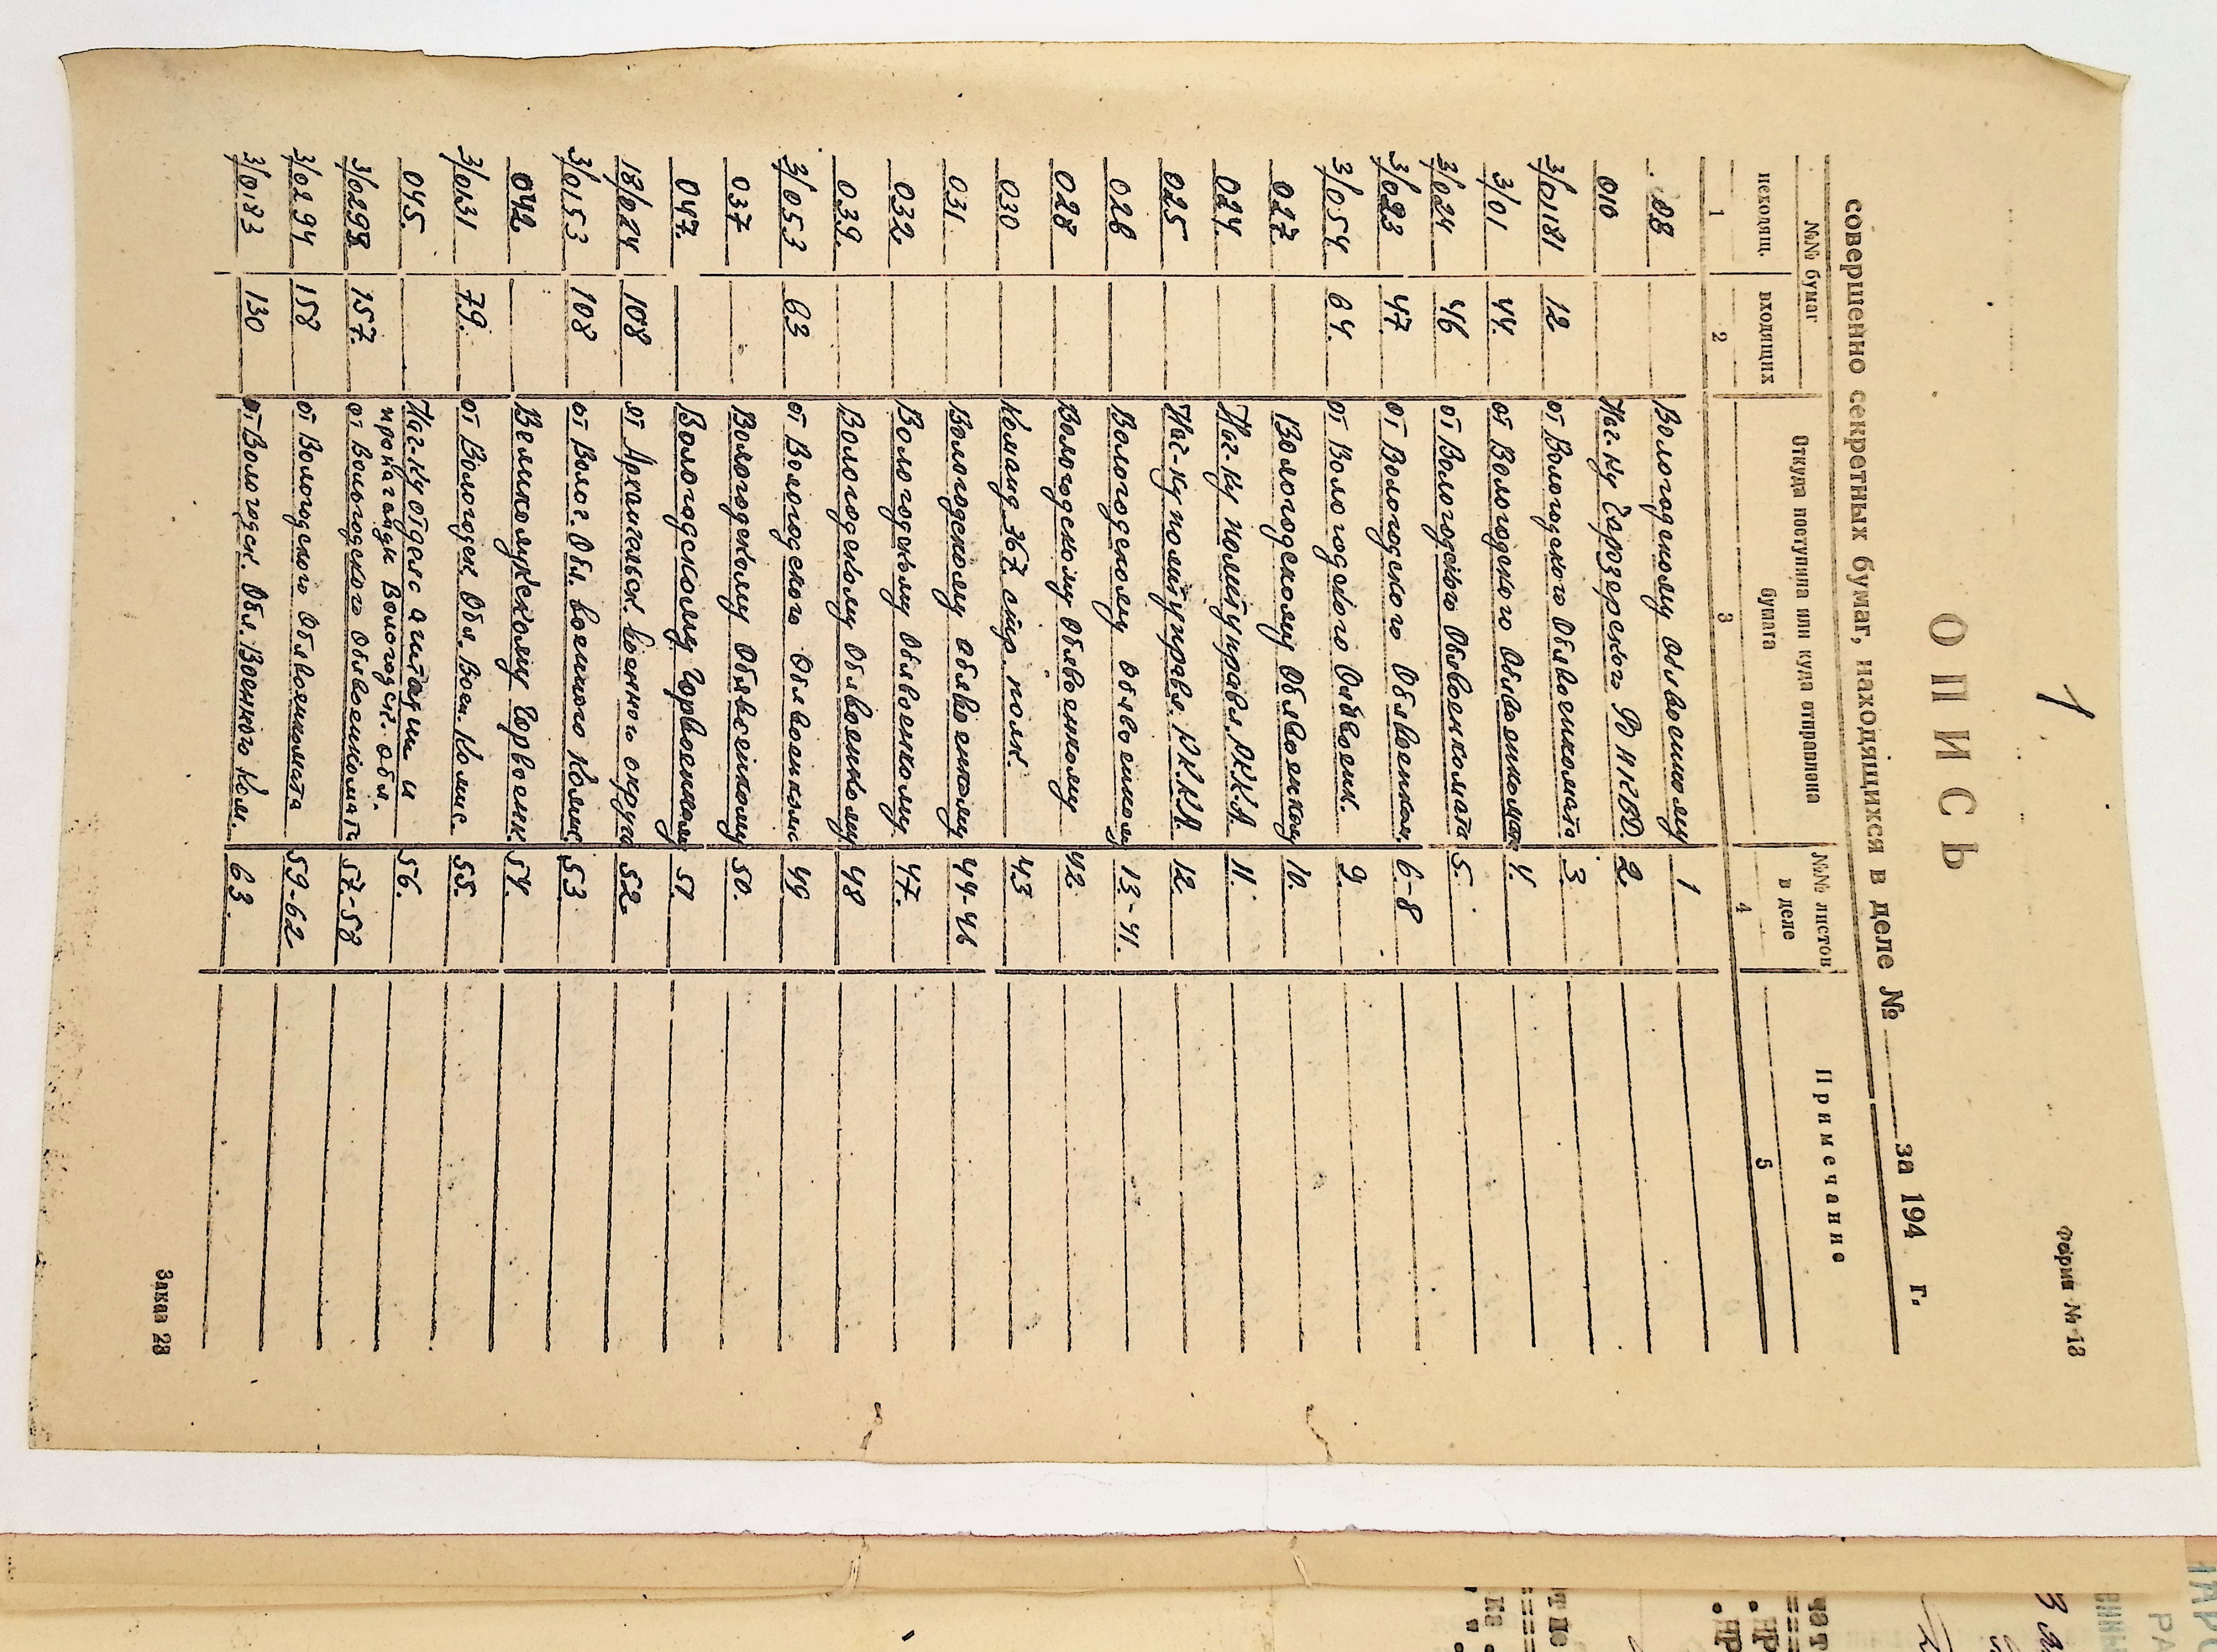 1
Форма № 13
ОПИСЬ
совершенно секретных бумаг, находящихся в деле № за 194 г.
№№ бумаг
исходящ. входящих Откуда поступила или куда отправлена бумага №№ листов в деле Примечание
1 2 3 4 5
08 Вологодскому Облвоенкому 1
010 Нач-ку Чарозерского РО НКВД. 2.
3/01181 12 от Вологодского Облвоенкомата 3.
3/01 44. от Вологодского Облвоенкомат 4.
3/024 46 от Вологодского Облвоенкомата 5.
3/023 47. от Вологодского Облвоенком. 6-8
3/054 64. от Вологодского Облвоенк. 9.
027. Вологодскому Облвоенкому 10.
024. Нач-ку политуправл. РККА. 11.
025 Нач-ку политуправл. РККА. 12.
026 Вологодскому Облвоенкому 13-41.
028 Вологодскому Облвоенкому 42.
030 Команд. 367 стр. полк. 43
031. Вологодскому Облвоенкому 44-46
032 Вологодскому Облвоенкому 47.
039. Вологодскому Облвоенкому 48
3/053 63 от Вологодского Облвоенком 49
037 Вологодскому Облвоенкому 50.
047. Вологодскому Горвоенкому 51
18/024 108 от Архангельск. Военного округа 52
3/0153 108 от Волог. Обл. военного Комис 53
042. Великолукскому Горвоенк. 54.
3/0131 79. от Вологодск Обл. Воен. Комис. 55.
045. Нач-ку отдела агитации и 56.
пропаганды Вологодск. обл.
3/0298 157. от Вологодского Облвоенкомата 57-58
3/0294 158 от Вологодского Облвоенкомата 59-62
3/0183 130 от Вологодск. Обл. Военного Ком. 63.
Заказ 23